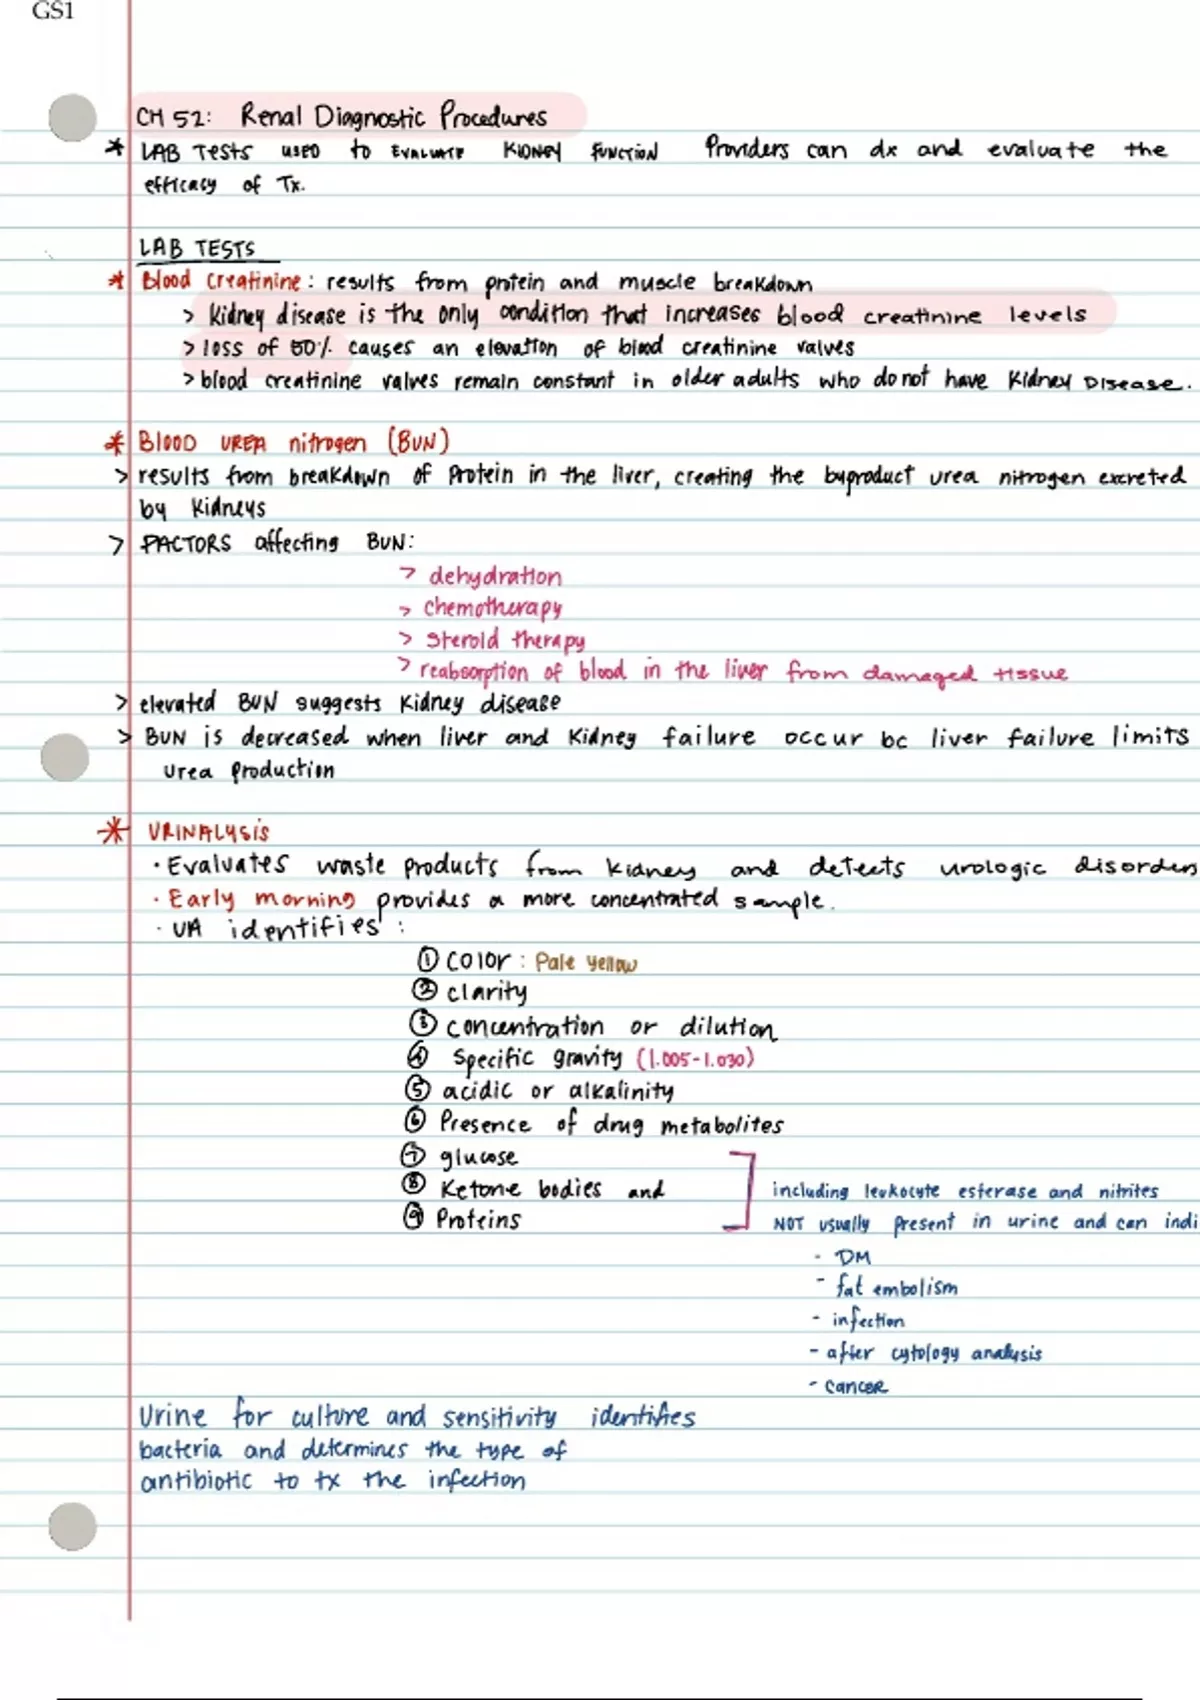 GS1
CH 52: Renal Diagnostic Procedures
* LAB Tests USED to EVALUATE KIDNEY FUNCTION Providers can dx and evaluate the
efficacy of Tx.
LAB TESTS
* Blood Creatinine: results from protein and muscle breakdown
> Kidney disease is the only condition that increases blood creatinine levels
> loss of 50% causes an elevation of blood creatinine valves
> blood creatinine valves remain constant in older adults who do not have Kidney Disease.
* Blood UREA nitrogen (BUN)
> results from breakdown of Protein in the liver, creating the byproduct urea nitrogen excreted
by Kidneys
> FACTORS affecting BUN:
> dehydration
> chemotherapy
> steroid therapy
> reabsorption of blood in the liver from damaged tissue
> elevated BUN suggests Kidney disease
> BUN is decreased when liver and Kidney failure occur bc liver failure limits
urea production
* URINALYSIS
· Evaluates waste products from kidney and detects urologic disorders
· Early morning provides a more concentrated sample.
· UA identifies:
① Color: Pale yellow
② clarity
③ concentration or dilution
④ Specific gravity (1.005-1.030)
⑤ acidic or alkalinity
⑥ Presence of drug metabolites
⑦ glucose
⑧ Ketone bodies and
⑨ Proteins
including leukocyte esterase and nitrites
NOT usually present in urine and can indi
- DM
- fat embolism
- infection
- after cytology analysis
- cancer
Urine for culture and sensitivity identifies
bacteria and determines the type of
antibiotic to tx the infection